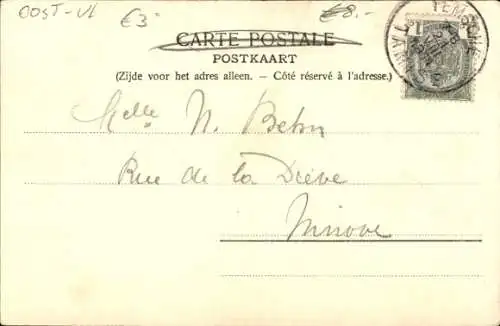 OOST-VL €3⁻ €8.-
CARTE POSTALE
POSTKAART
(Zijde voor het adres alleen. – Côté réservé à l'adresse.)
1
TEMSCHE
Melle N.
Rue de la Diève
Ninove